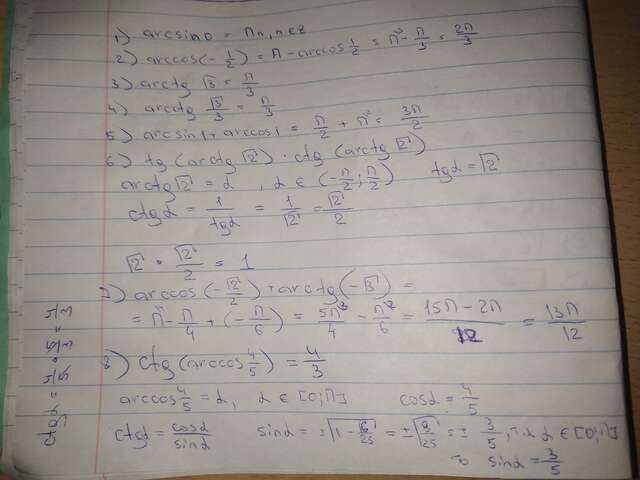 1) arcsin0 = πn, n∈z
2) arccos(-1/2) = π - arccos 1/2 = π - π/3 = 2π/3
3) arctg √3 = π/3
4) arcctg √3/3 = π/3
5) arcsin1 + arccos1 = π/2 + π = 3π/2
6) tg(arctg √2) · ctg(arctg √2)
arctg √2 = α, α ∈ (-π/2; π/2) tgα = √2
ctgα = 1/tgα = 1/√2 = √2/2
√2 · √2/2 = 1
7) arccos(-√2/2) + arctg(-√3) =
= π - π/4 + (-π/6) = 5π/4 - π/6 = 15π - 2π/12 = 13π/12
8) ctg(arccos 4/5) = 4/3
arccos 4/5 = α, α ∈ [0; π] cosα = 4/5
ctgα = cosα/sinα sinα = ±√1 - 16/25 = ±√9/25 = ± 3/5, т.к. α ∈ [0; π]
то sinα = 3/5
ctgα = 4/5 · 5/3 = 4/3